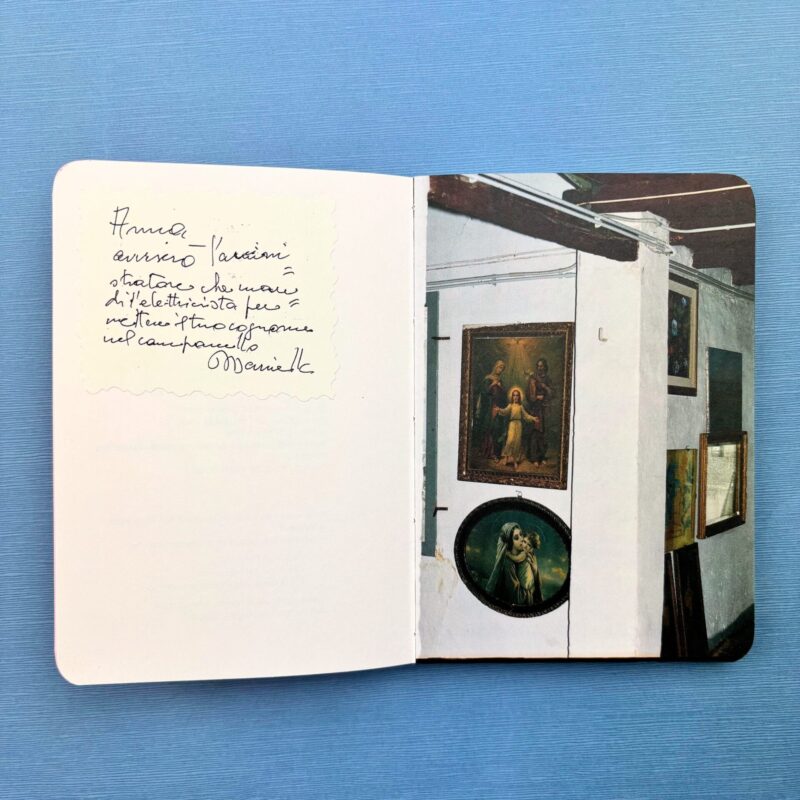 Anna,
avviserò l'ammini=
stratore che man
di l'elettricista per=
mettere il tuo cognome
nel campanello